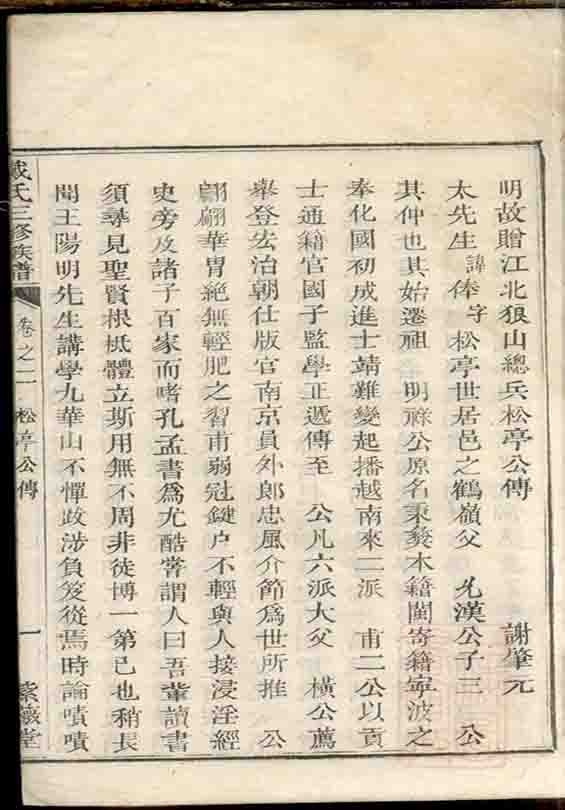 明故贈江北狼山總兵松亭公傳 謝肇元
太先生諱俸字松亭世居邑之鶴嶺父 允漢公子三 公
其仲也其始遷祖 明祿公原名秉彝本籍閩寄籍寧波之
奉化國初成進士靖難變起播越南來二派 甫二公以貢
士通籍官國子監學正遞傳至 公凡六派大父 橫公薦
舉登宏治朝仕版官南京員外郎忠風介節為世所推 公
翩翩華胄絕無輕肥之習甫弱冠鍵户不輕與人接浸淫經
史旁及諸子百家而嗜孔孟書為尤酷嘗謂人曰吾輩讀書
須尋見聖賢根柢體立斯用無不周非徒博一第已也稍長
聞王陽明先生講學九華山不憚跋涉負笈從焉時論嘖嘖
戴氏三修族譜 卷之二 松亭公傳 一 紫薇堂